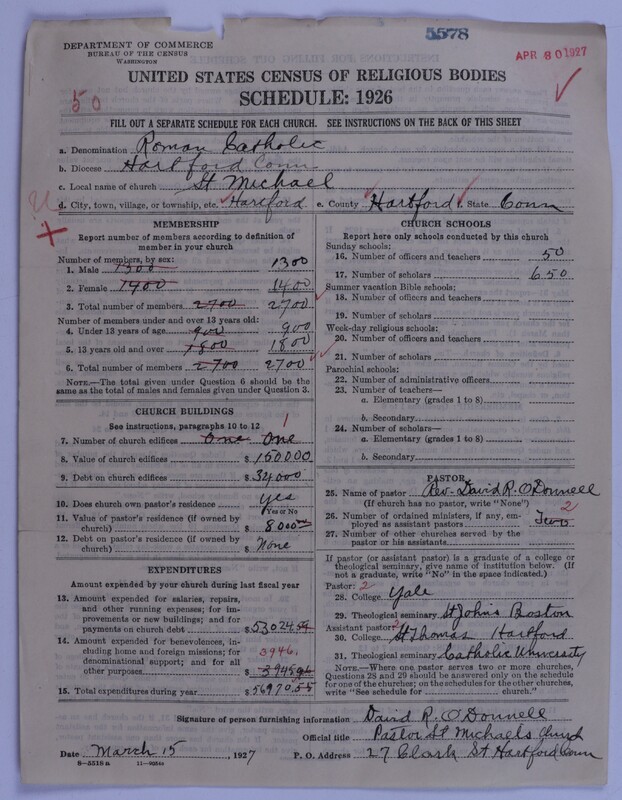 5578
DEPARTMENT OF COMMERCE
BUREAU OF THE CENSUS
WASHINGTON
APR 80 1927
UNITED STATES CENSUS OF RELIGIOUS BODIES
50
SCHEDULE: 1926
FILL OUT A SEPARATE SCHEDULE FOR EACH CHURCH. SEE INSTRUCTIONS ON THE BACK OF THIS SHEET
a. Denomination Roman Catholic
b. Diocese Hartford Conn
c. Local name of church St Michael
d. City, town, village, or township, etc. Hartford e. County Hartford f. State Conn
MEMBERSHIP
Report number of members according to definition of
member in your church
Number of members, by sex:
1. Male 1300 1300
2. Female 1400 1400
3. Total number of members 2700 2700
Number of members under and over 13 years old:
4. Under 13 years of age 900 900
5. 13 years old and over 1800 1800
6. Total number of members 2700 2700
NOTE.—The total given under Question 6 should be the
same as the total of males and females given under Question 3.
CHURCH BUILDINGS
See instructions, paragraphs 10 to 12 1
7. Number of church edifices One One
8. Value of church edifices $ 150000
9. Debt on church edifices $ 32000
10. Does church own pastor's residence? yes
Yes or No
11. Value of pastor's residence (if owned by
church) $ 8000
12. Debt on pastor's residence (if owned by
church) $ None
EXPENDITURES
Amount expended by your church during last fiscal year
13. Amount expended for salaries, repairs,
and other running expenses; for im-
provements or new buildings; and for
payments on church debt $ 53024
14. Amount expended for benevolences, in-
cluding home and foreign missions; for
denominational support; and for all 3946
other purposes $ 3945
15. Total expenditures during year $ 56970
CHURCH SCHOOLS
Report here only schools conducted by this church
Sunday schools:
16. Number of officers and teachers 50
17. Number of scholars 650
Summer vacation Bible schools:
18. Number of officers and teachers
19. Number of scholars
Week-day religious schools:
20. Number of officers and teachers
21. Number of scholars
Parochial schools:
22. Number of administrative officers
23. Number of teachers—
a. Elementary (grades 1 to 8)
b. Secondary
24. Number of scholars—
a. Elementary (grades 1 to 8)
b. Secondary
PASTOR
25. Name of pastor Rev. David R. O'Donnell
(If church has no pastor, write "None")
26. Number of ordained ministers, if any, em- 2
ployed as assistant pastors Two
27. Number of other churches served by the
pastor or his assistants
If pastor (or assistant pastor) is a graduate of a college or
theological seminary, give name of institution below. (If
not a graduate, write "No" in the space indicated.)
Pastor: 2
28. College Yale
29. Theological seminary St Johns Boston
Assistant pastor: 2
30. College St Thomas Hartford
31. Theological seminary Catholic University
NOTE.—Where one pastor serves two or more churches,
Questions 28 and 29 should be answered only on the schedule
for one of the churches; on the schedules for the other churches,
write "See schedule for church."
Signature of person furnishing information David R. O'Donnell
Official title Pastor St Michaels Church
Date March 15, 1927 P. O. Address 27 Clark St Hartford Conn
8—5518 a